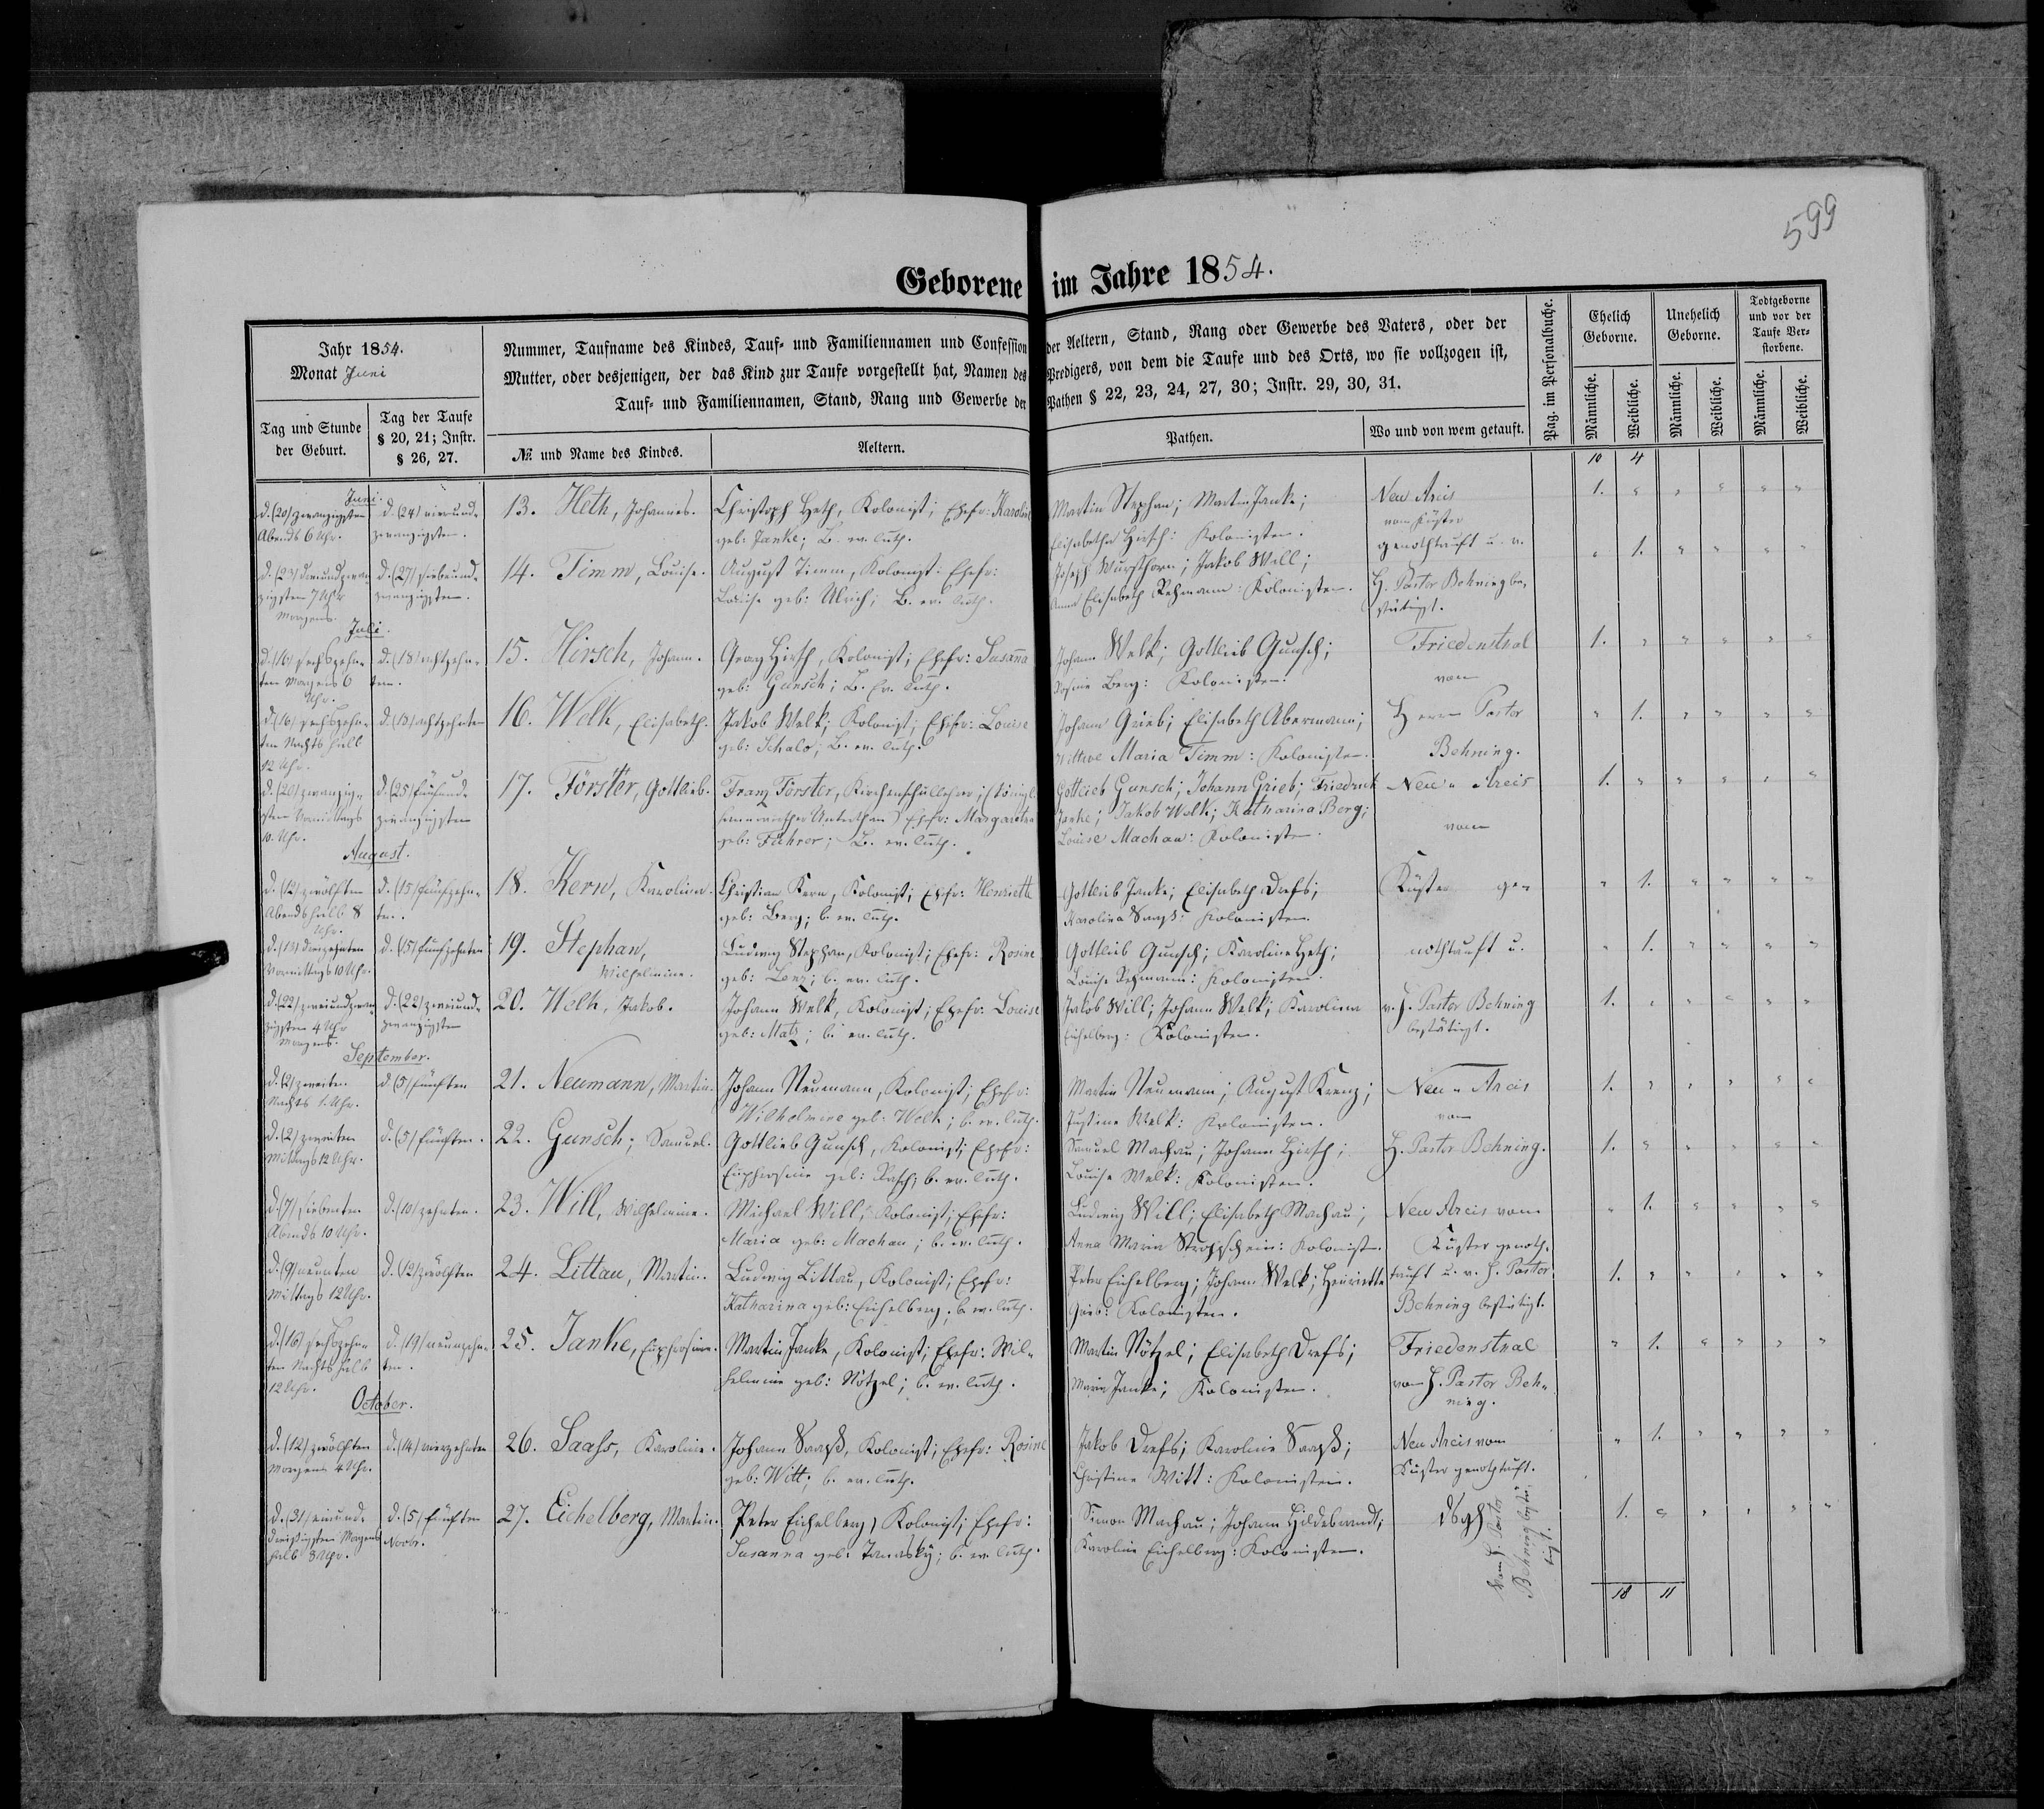 599
Geborene im Jahre 1854.
Jahr 1854.
Monat Juni
Tag und Stunde der Geburt.
Tag der Taufe § 20, 21; Instr. § 26, 27.
Nummer, Taufname des Kindes, Tauf- und Familiennamen und Confession der Aeltern, Stand, Rang oder Gewerbe des Vaters, oder der
Mutter, oder desjenigen, der das Kind zur Taufe vorgestellt hat, Namen des Predigers, von dem die Taufe und des Orts, wo sie vollzogen ist,
Tauf- und Familiennamen, Stand, Rang und Gewerbe der Pathen § 22, 23, 24, 27, 30; Instr. 29, 30, 31.
№ und Name des Kindes.
Aeltern.
Pathen.
Wo und von wem getauft.
Pag. im Personalbuche.
Ehelich Geborne.
Unehelich Geborne.
Todtgeborne und vor der Taufe Verstorbene.
Männliche. Weibliche. Männliche. Weibliche. Männliche. Weibliche.
10 4
Juni.
d. (20) zwanzigsten Abends 6 Uhr.
d. (24) vierundzwanzigsten.
13. Heth, Johannes.
Christoph Heth, Kolonist; Ehefr: Karoline
geb: Janke; B. ev. luth.
Martin Stephan; Martin Janke;
Elisabetha Hirsch: Kolonisten.
Neu Arcis
vom Küster
1.
d. (23) dreiundzwanzigsten 7 Uhr Morgens.
d. (27) siebenundzwanzigsten.
14. Timm, Louise.
August Timm, Kolonist. Ehefr:
Louise geb: Ulrich; B. ev. luth.
Joseph Wursthorn; Jakob Will;
Anna Elisabeth Rehmann: Kolonisten.
genothtauft u. v.
H. Pastor Behning be-
stätigt.
1.
Juli.
d. (16) sechszehnten Morgens 6 Uhr.
d. (18) achtzehnten.
15. Hirsch, Johann.
Georg Hirsch, Kolonist; Ehefr: Susanna
geb: Gunsch; B. ev. luth.
Johann Welk; Gottlieb Gunsch;
Rosine Berg: Kolonisten.
Friedensthal
von
1.
d. (16) sechszehnten Nachts halb 12 Uhr.
d. (18) achtzehnten
16. Welk, Elisabeth.
Jakob Welk; Kolonist; Ehefr: Louise
geb: Schalo; B. ev. luth.
Johann Grieb; Elisabeth Abermann;
Wittwe Maria Timm: Kolonisten.
Herrn Pastor
Behning.
1.
d. (20) zwanzigsten Vormittags 10. Uhr.
d. (25) fünfundzwanzigsten
17. Förster, Gottlieb.
Franz Förster, Kirchenschullehrer; (Königl.
Unterthan) Ehefr: Margaretha
geb: Führer; B. ev. luth.
Gottlieb Gunsch; Johann Grieb; Friedrich
Janke; Jakob Welk; Katharina Berg;
Louise Machau: Kolonisten.
Neu Arcis
vom
1.
August.
d. (12) zwölften Abends halb 8 Uhr.
d. (15) fünfzehnten.
18. Kern, Karolina.
Christian Kern, Kolonist; Ehefr: Henriette
geb: Berg; b. ev. luth.
Gottlieb Janke; Elisabeth Drefs;
Karolina Saaß: Kolonisten.
Küster ge-
1.
d. (13) dreizehnten Vormittags 10 Uhr.
d. (15) fünfzehnten
19. Stephan,
Wilhelmine.
Ludwig Stephan, Kolonist; Ehefr: Rosine
geb: Lenz; b. ev. luth.
Gottlieb Gunsch; Karoline Heth;
Louise Rehmann: Kolonisten.
nothtauft u.
1.
d. (22) zweiundzwanzigsten 4 Uhr Morgens.
d. (22) zweiundzwanzigsten
20. Welk, Jakob.
Johann Welk, Kolonist; Ehefr: Louise
geb: Matz; b. ev. luth.
Jakob Will; Johann Welk; Karolina
Eichelberg: Kolonisten.
v. H. Pastor Behning
bestätigt.
1.
September.
d. (2) zweiten Nachts 1. Uhr.
d. (5) fünften
21. Neumann, Martin.
Johann Neumann, Kolonist; Ehefr:
Wilhelmine geb: Welk; b. ev. luth.
Martin Neumann; August Krenz;
Justine Welk: Kolonisten.
Neu Arcis
von
1.
d. (2) zweiten Mittags 12 Uhr.
d. (5) fünften.
22. Gunsch; Samuel.
Gottlieb Gunsch, Kolonist; Ehefr:
Euphrosine geb: Rasch; b. ev. luth.
Samuel Machau; Johann Hirsch;
Louise Welk: Kolonisten.
H. Pastor Behning.
1.
d. (7) siebenten Abends 10 Uhr.
d. (10) zehnten.
23. Will, Wilhelmine.
Michael Will; Kolonist; Ehefr:
Maria geb: Machau; b. ev. luth.
Ludwig Will; Elisabeth Machau;
Anna Maria: Kolonisten.
Neu Arcis vom
Küster genoth-
1.
d. (9) neunten Mittags 12 Uhr.
d. (12) zwölften
24. Littau, Martin.
Ludwig Littau, Kolonist; Ehefr:
Katharina geb: Eichelberg; b. ev. luth.
Peter Eichelberg; Johann Welk; Henriette
Grieb: Kolonisten.
tauft u. v. H. Pastor
Behning bestätigt.
1.
d. (16) sechszehnten Nachts halb 12 Uhr.
d. (19) neunzehnten.
25. Janke, Euphrosine.
Martin Janke, Kolonist; Ehefr: Wil-
helmine geb: Nötzel; b. ev. luth.
Martin Nötzel; Elisabeth Drefs;
Maria Janke; Kolonisten.
Friedensthal
vom H. Pastor Beh-
ning.
1.
October.
d. (12) zwölften Morgens 4 Uhr.
d. (14) vierzehnten
26. Saass, Karoline.
Johann Saaß, Kolonist; Ehefr: Rosine
geb: Witt; b. ev. luth.
Jakob Drefs; Karoline Saaß;
Christine Witt: Kolonisten.
Neu Arcis vom
Küster genothtauft.
1.
d. (31) einunddreißigsten Morgens halb 8 Uhr.
d. (5) fünften Novbr.
27. Eichelberg, Martin.
Peter Eichelberg, Kolonist; Ehefr:
Susanna geb: Tomasky; b. ev. luth.
Simon Machau; Johann Hildebrandt;
Karoline Eichelberg: Kolonisten.
Vom H. Pastor
Behning bestä-
tigt.
1.
18 11